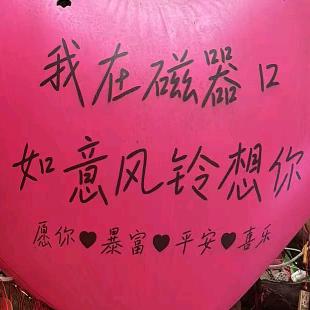 我在磁器口
如意风铃想你
愿你♥暴富♥平安♥喜乐